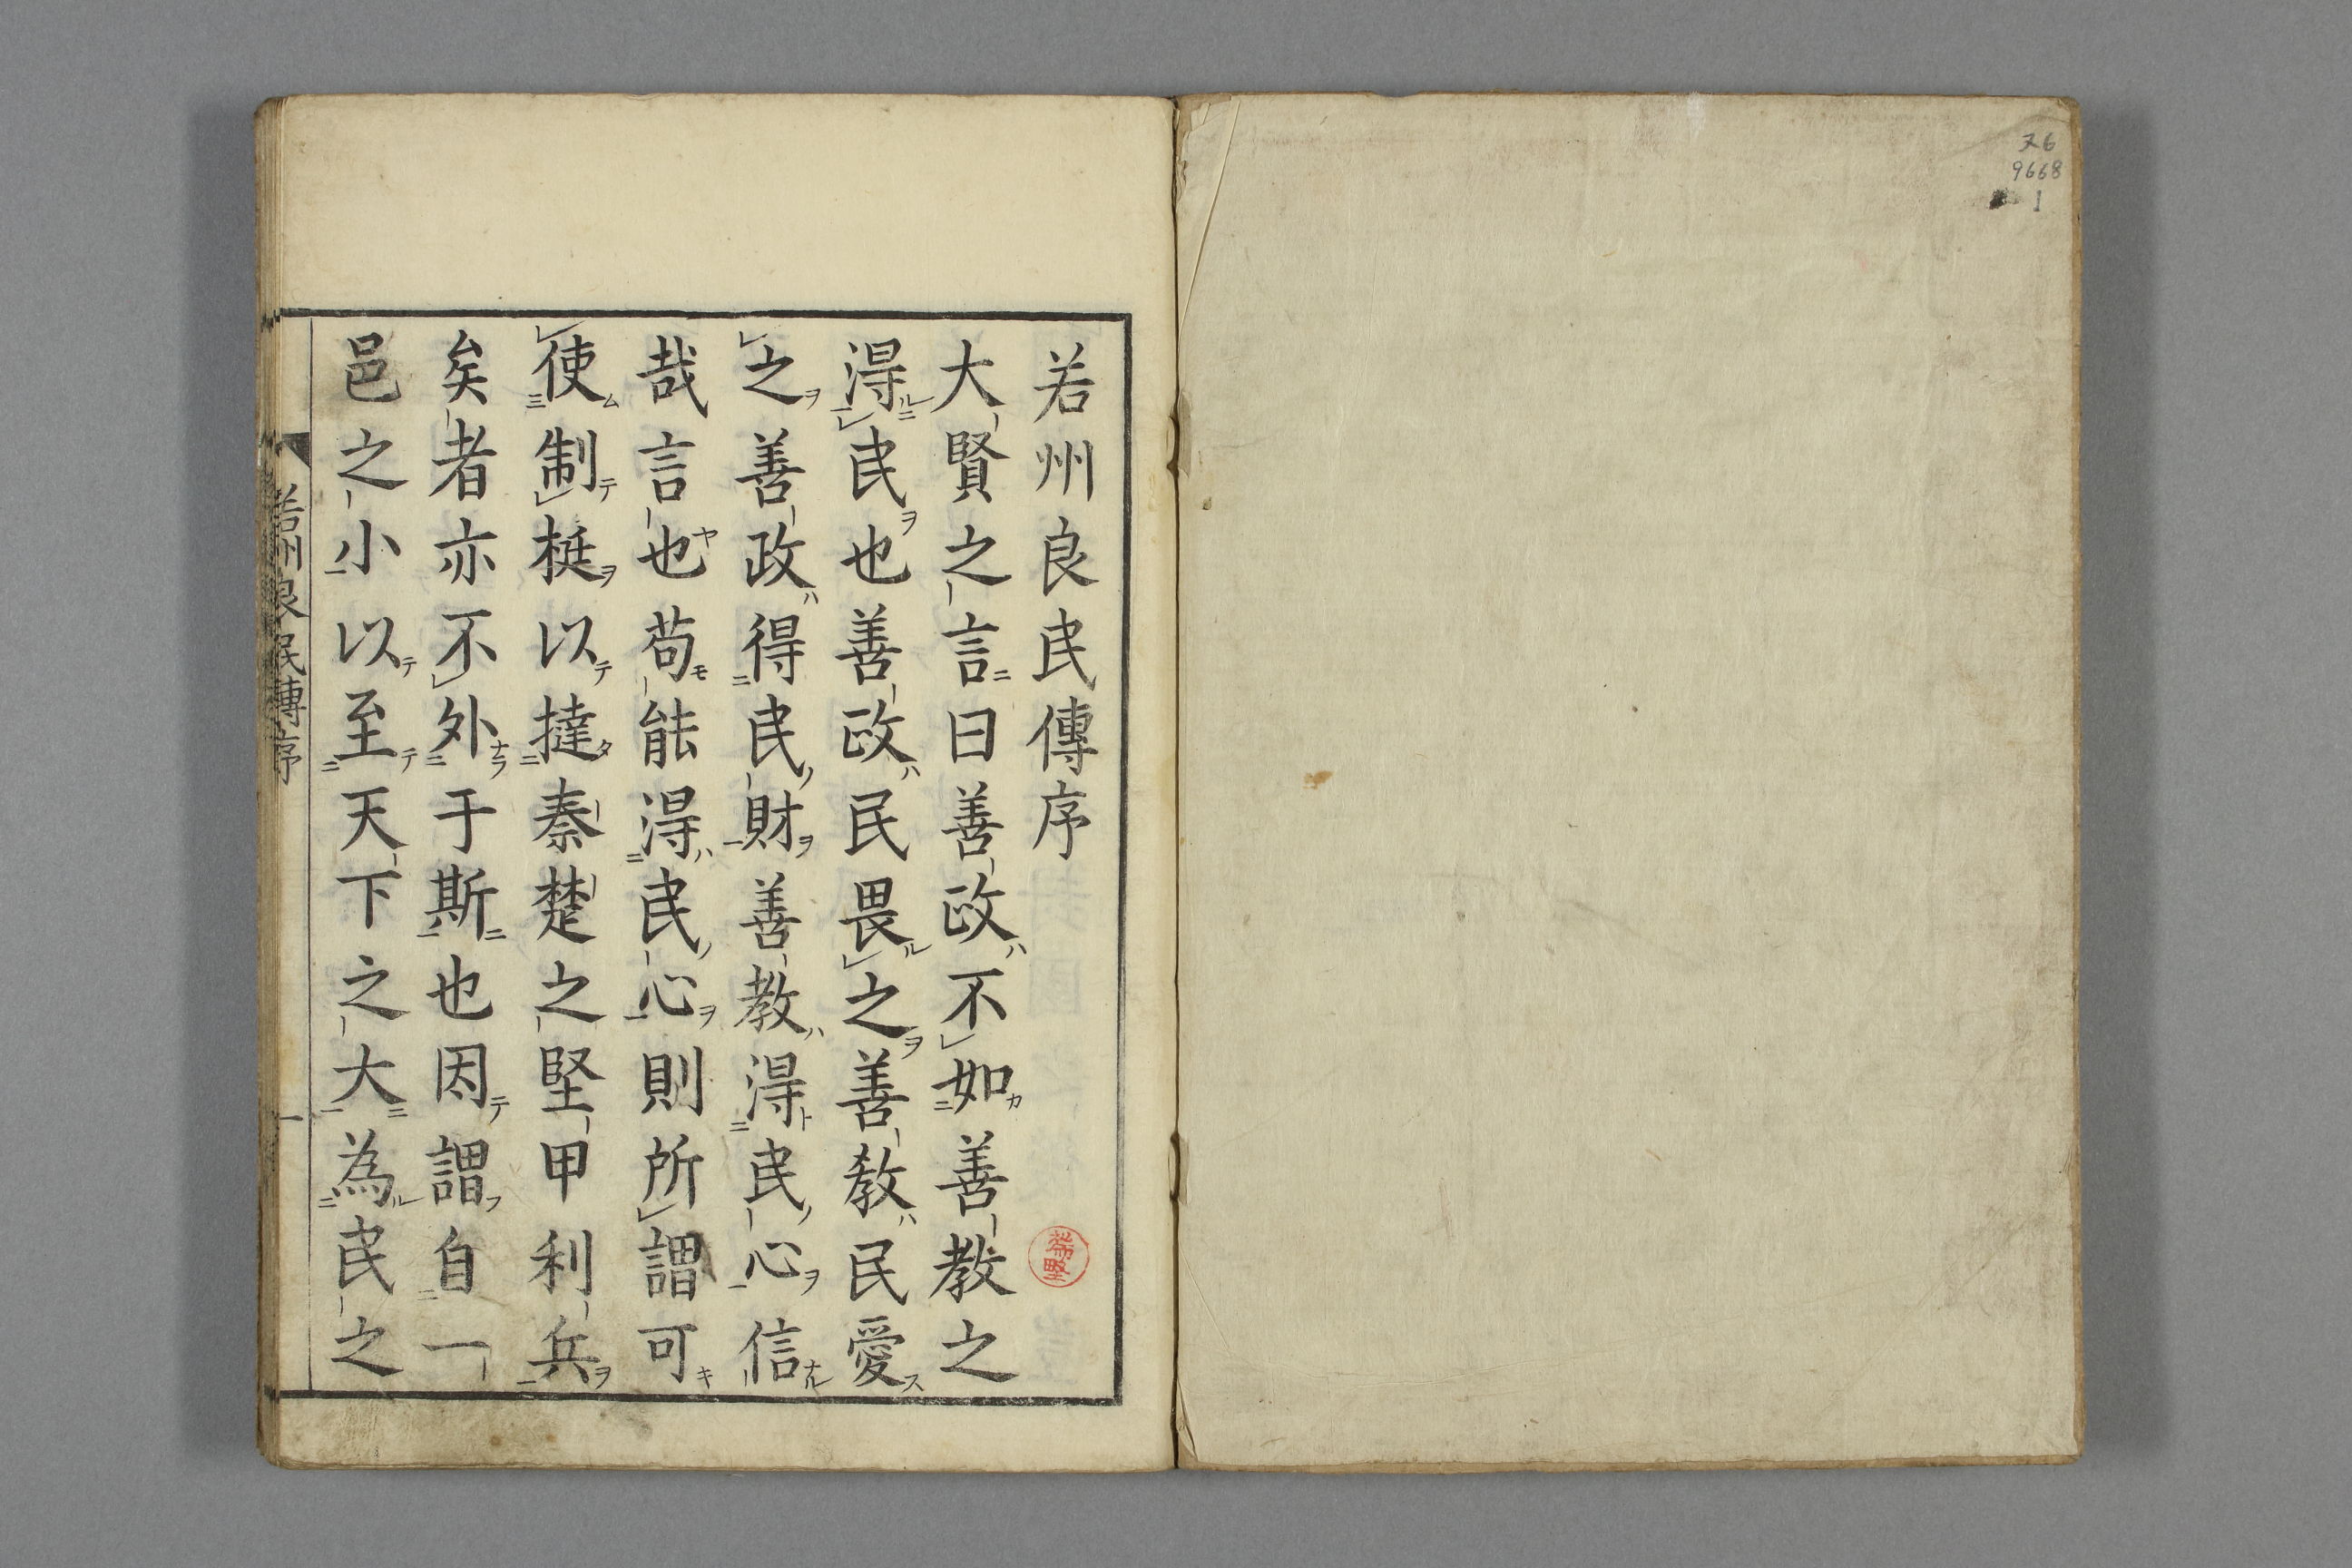 ヌ6
9668
1
若州良民傳序
大賢之言曰善政不如善教之
淂民也善政民畏之善教民愛
之善政得民財善教淂民心信
哉言也苟能淂民心則所謂可
使制梃以撻秦楚之堅甲利兵
矣者亦不外于斯也因謂自一
邑之小以至天下之大為民之
若州良民傳序
一